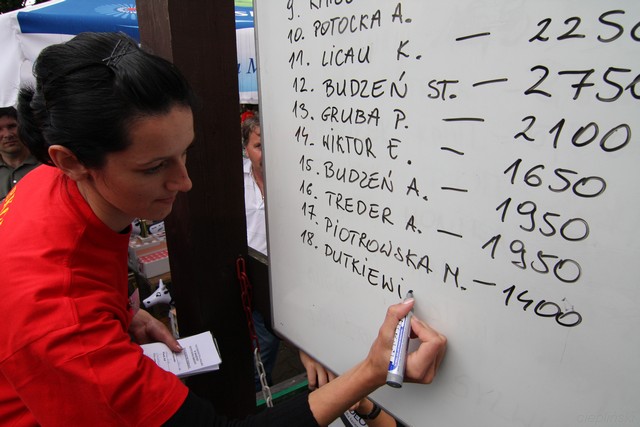 9.
10. POTOCKA A.
11. LICAU K. — 2250
12. BUDZEŃ ST. — 2750
13. GRUBA P. — 2100
14. WIKTOR E. — 1650
15. BUDZEŃ A. — 1950
16. TREDER A. — 1950
17. PIOTROWSKA M. — 1400
18. DUTKIEWI